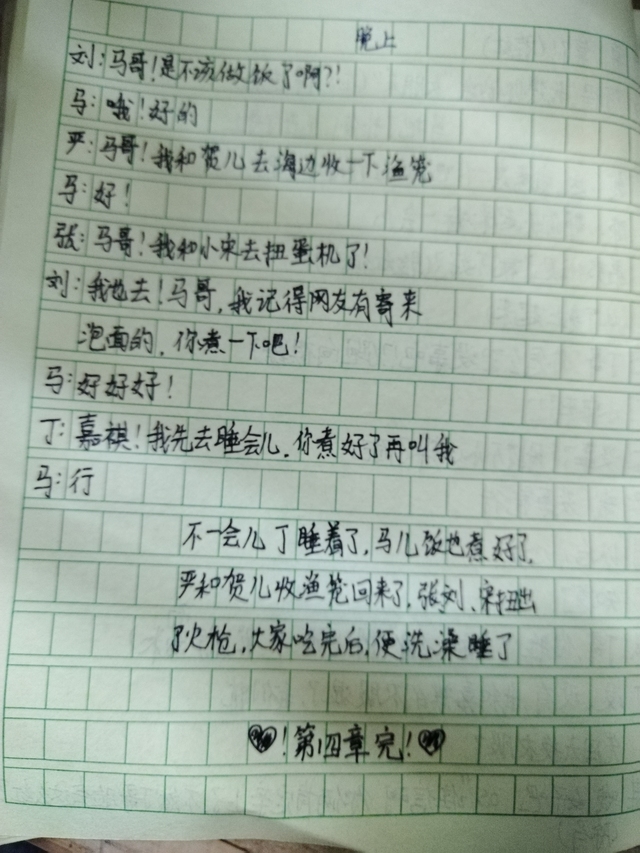 晚上
刘:马哥!是不该做饭了啊?!
马:哦!好的
严:马哥!我和贺儿去海边收一下渔笼
马:好!
张:马哥!我和小宋去扭蛋机了!
刘:我也去!马哥,我记得网友有寄来
泡面的,你煮一下吧!
马:好好好!
丁:嘉祺!我先去睡会儿,你煮好了再叫我
马:行
不一会儿丁睡着了,马儿饭也煮好了,
严和贺儿收渔笼回来了,张刘、宋扭出
了火枪,大家吃完后,便洗澡睡了
!第四章完!